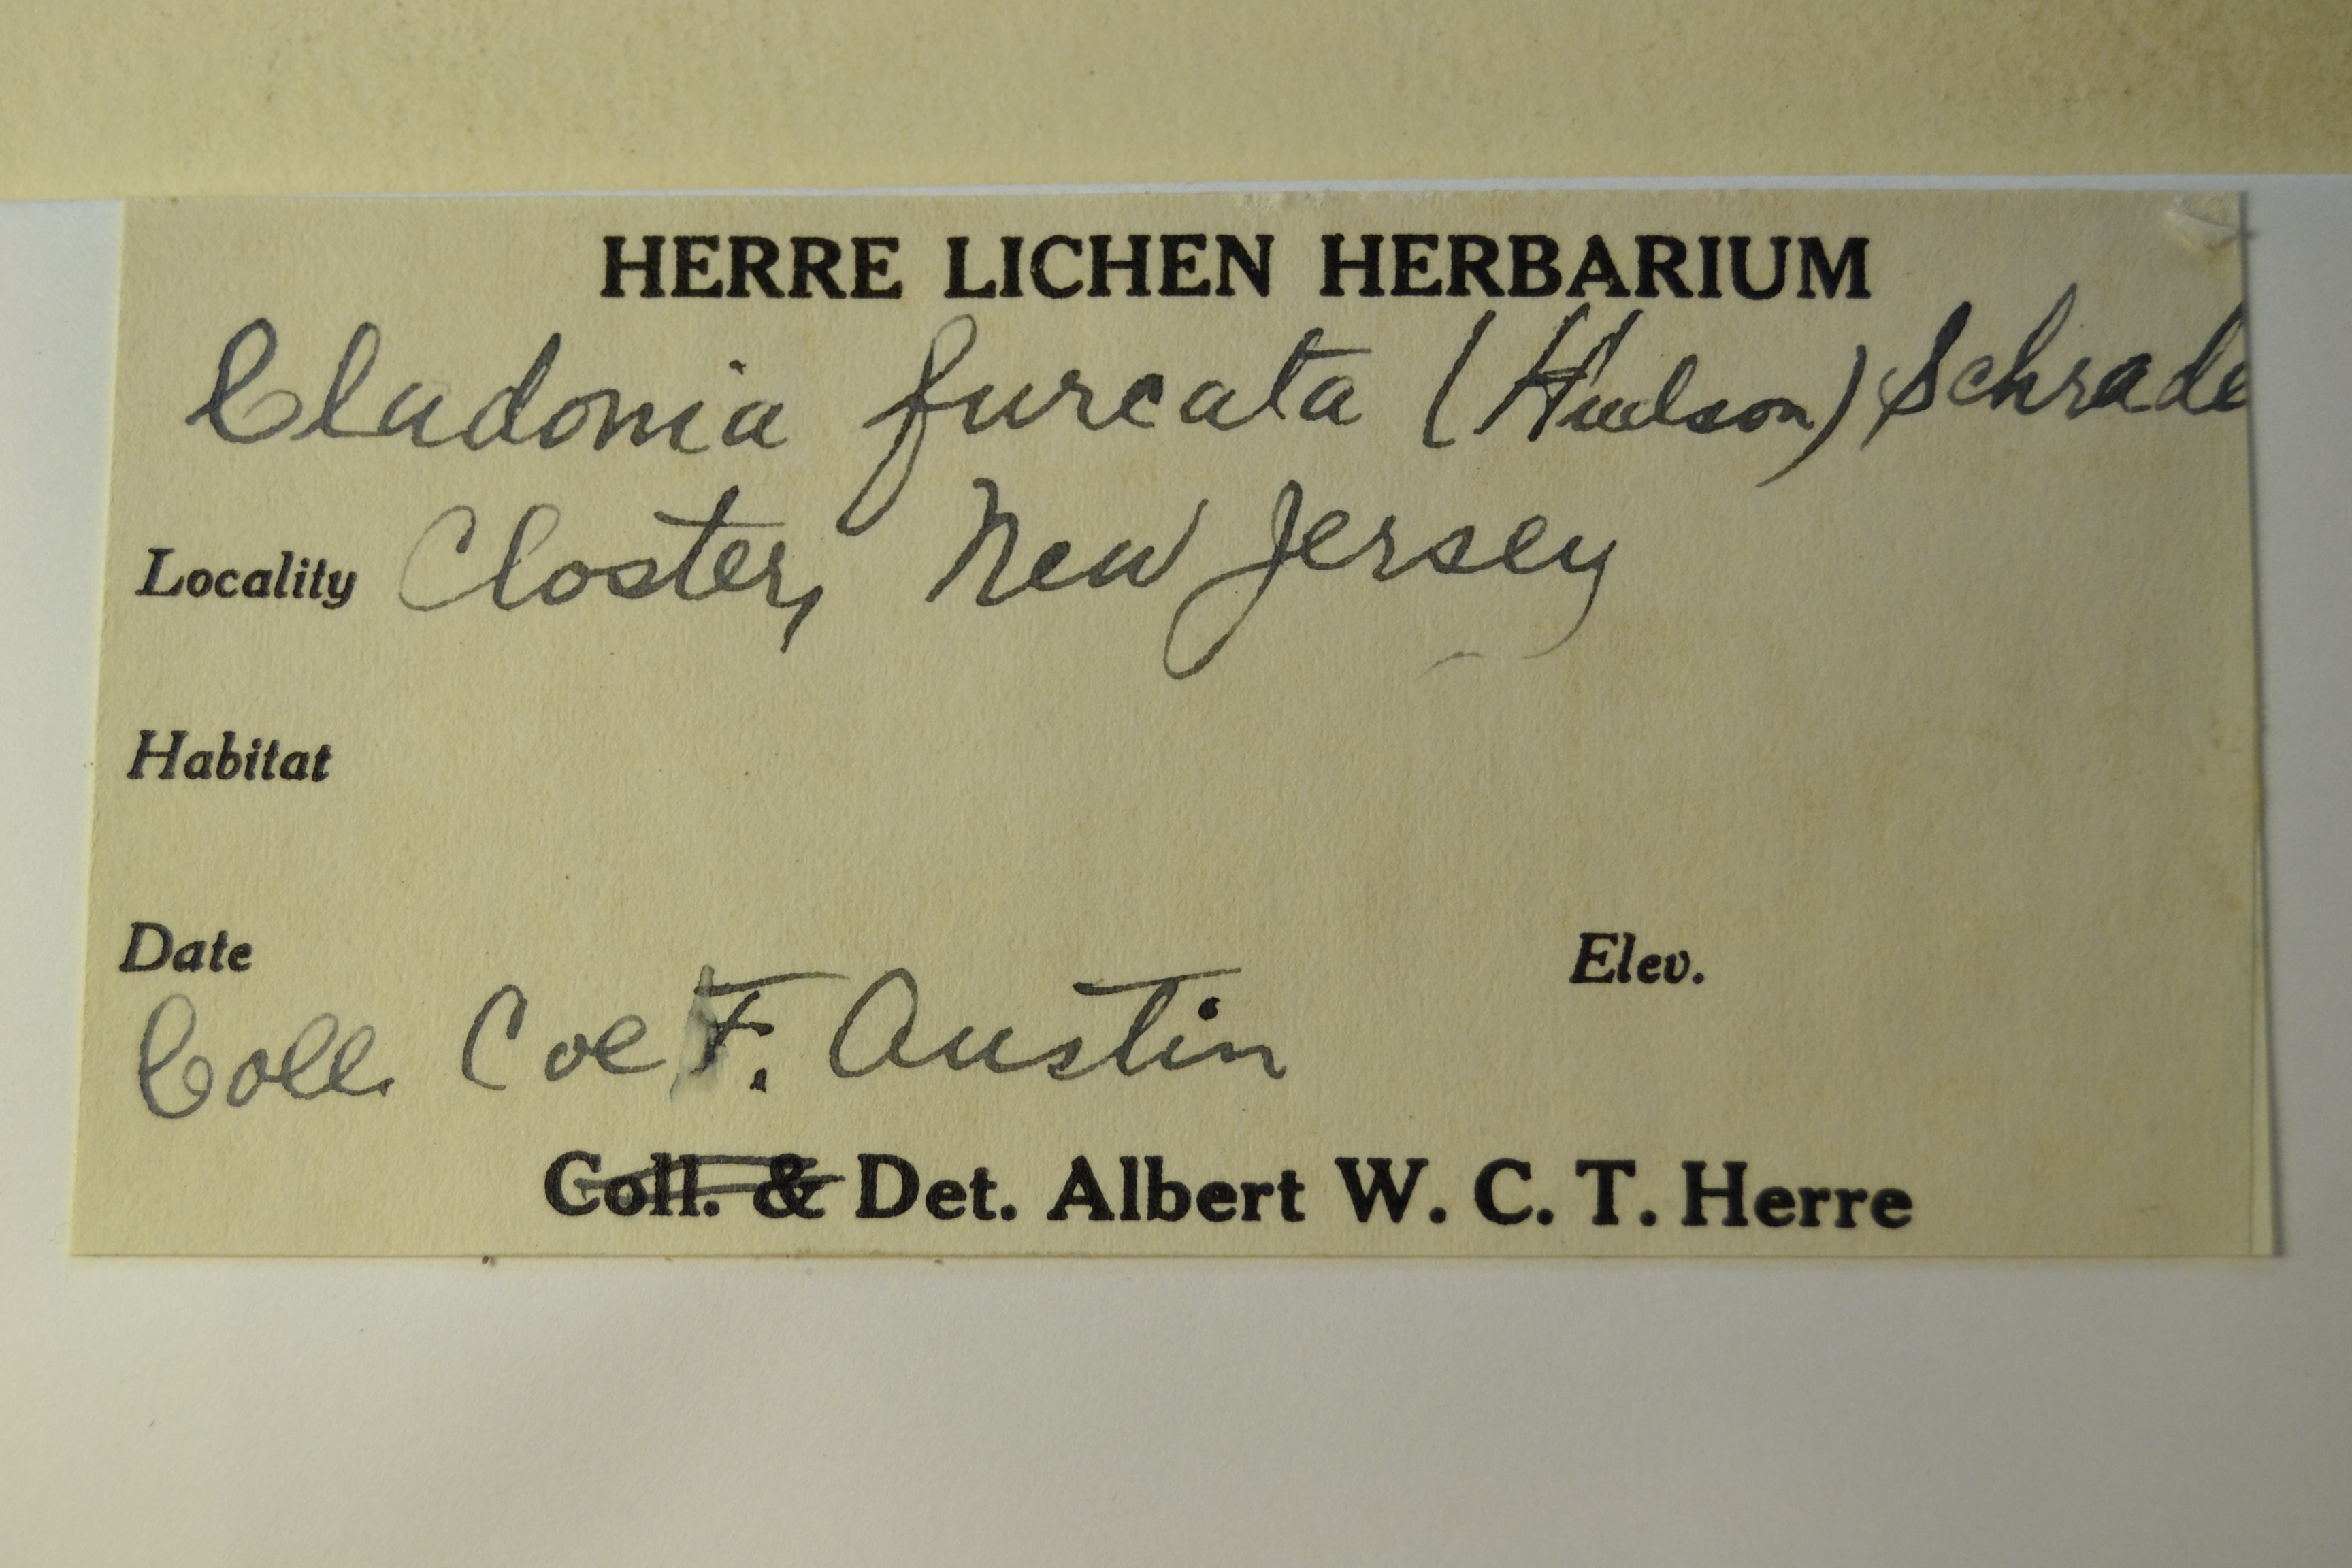 HERRE LICHEN HERBARIUM
Cladonia furcata (Hudson) Schrade
Locality Closter, New Jersey
Habitat
Date Elev.
Coll. Coe F. Austin
Coll. & Det. Albert W. C. T. Herre